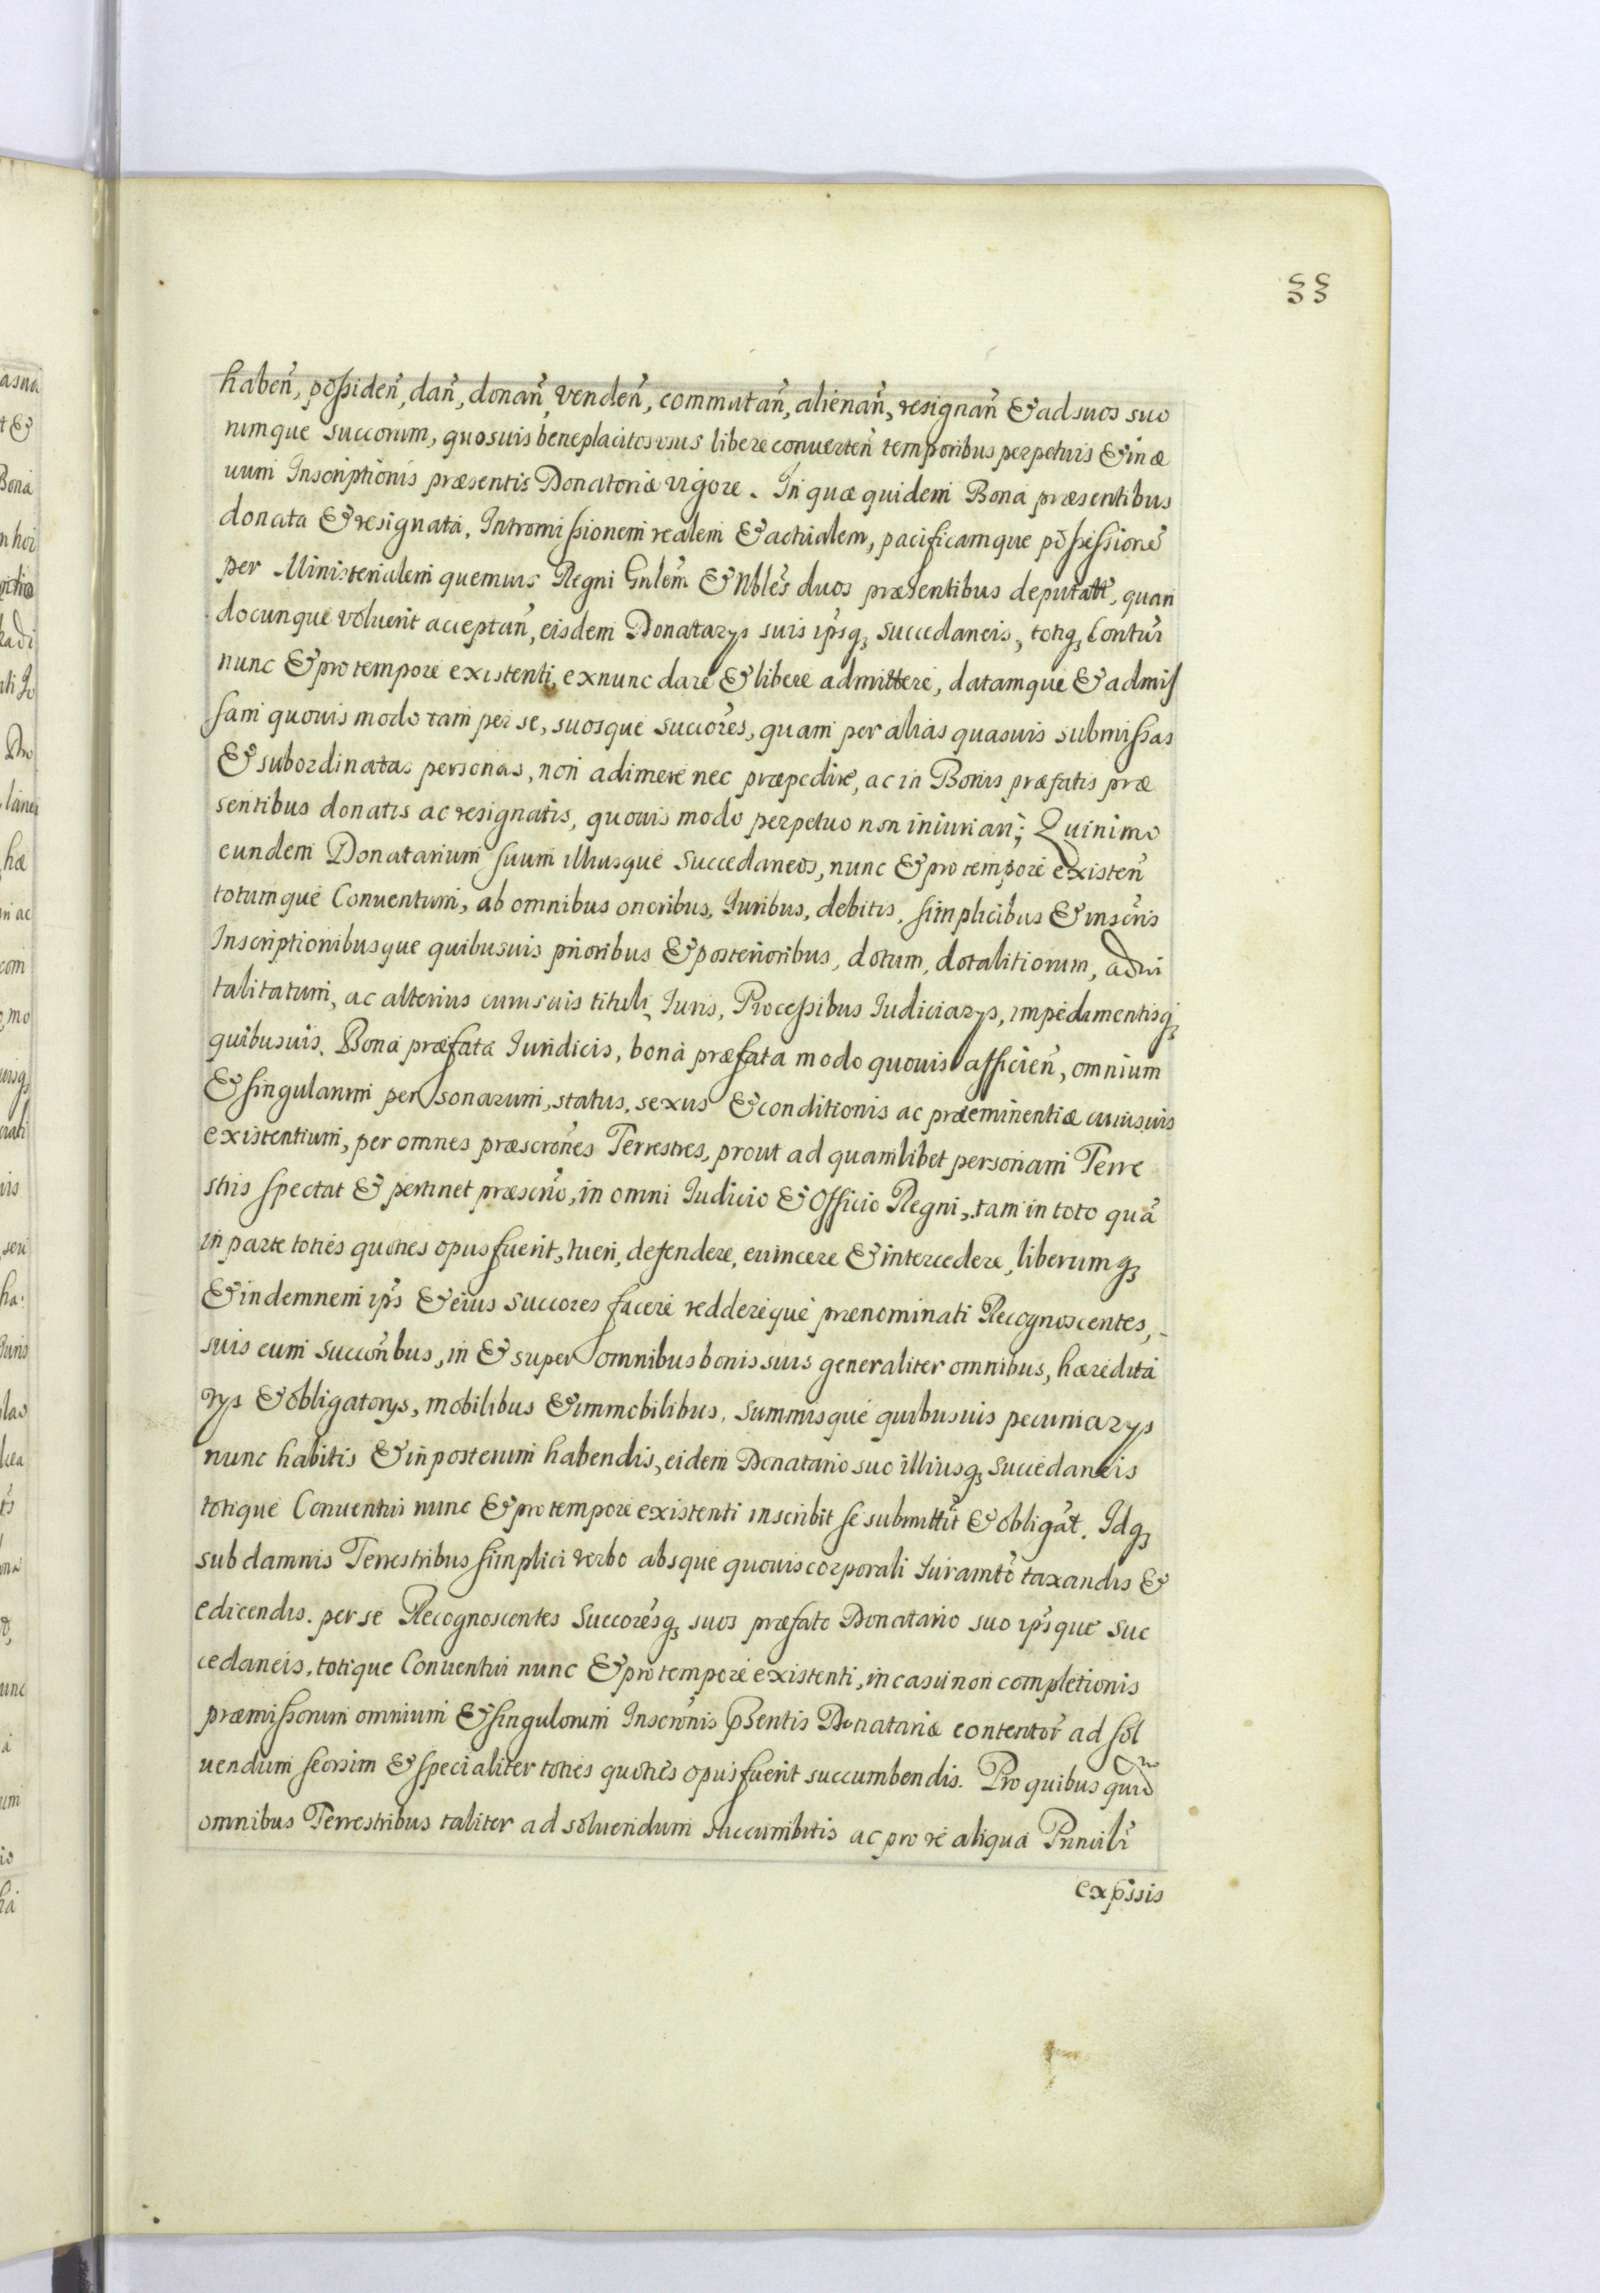 55
habeñ, possideñ, dañ, donañ, vendeñ, commutañ, alienañ, resignañ & ad suos suo
rumque succorum, quosuis beneplacitos usus libere conuerteñ temporibus perpetuis & in æ
uum Inscriptionis præsentis Donatoriæ vigore. In quæ quidem Bona præsentibus
donata & resignata, Intromissionem realem & actualem, pacificamque possessionē
per Ministerialem quemuis Regni Gnlem & Nbles duos præsentibus deputatt, quan
documque voluerit acceptañ, eisdem Donatarys suis ipsq₃ succedaneis, totiq₃ Contui
nunc & pro tempore existenti, exnunc dare & libere admittere, datamque & admis
sam quouis modo tam per se, suosque succores, quam per alias quasuis submissas
& subordinatas personas, non adimere nec præpedire, ac in Bonis præfatis præ
sentibus donatis ac resignatis, quouis modo perpetuo non iniuriari; Quinimo
eundem Donatarium suum illiusque succedaneos, nunc & pro tempore existeñ
totumque Conuentum, ab omnibus oneribus, Iuribus, debitis, simplicibus & inscris
Inscriptionibusque quibusuis prioribus & posterioribus, dotum, dotalitiorum, adui
talitatum, ac alterius cuiusuis tituli, Iuris, Processibus Iudiciarys, impedimentisq₃
quibusuis. Bona præfata Iuridicis, bona præfata modo quouis afficieñ, omnium
& singularum personarum, status, sexus & conditionis ac præeminentiæ cuiusuis
existentium, per omnes præscrones Terrestres, prout ad quamlibet personam Terre
stris spectat & pertinet præscrio, in omni Iudicio & Officio Regni, tam in toto quā
in parte toties quoties opus fuerit, tueri, defendere, euincere & intercedere, liberumq₃
& indemnem ips & eius succores facere reddereque prænominati Recognoscentes,
suis cum succoribus, in & super omnibus bonis suis generaliter omnibus, hæredita
rys & obligatorys, mobilibus & immobilibus, summisque quibusuis pecuniarys
nunc habitis & in posterum habendis, eidem Donatario suo illiusq₃ succedaneis
totique Conuentui nunc & pro tempore existenti inscribit se submittit & obligat. Idq₃
sub damnis Terrestribus simplici verbo absque quouis corporali Iuramto taxandis &
edicendis. per se Recognoscentes Succoresq₃ suos præfato Donatario suo ipsque suc
cedaneis, totique Conuentui nunc & pro tempore existenti, in casu non completionis
præmissorum omnium & singulorum Inscronis pñsentis Donatariæ contentor ad sol
uendum seorsim & specialiter toties quoties opus fuerit succumbendis. Pro quibus quid
omnibus Terrestribus taliter ad soluendum succumbitis ac pro re aliqua Princili
expssis